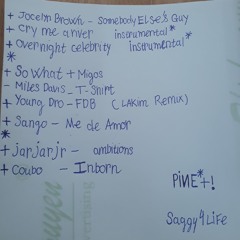 + Jocelyn Brown - Somebody Else's Guy
+ Cry me a river instrumental*
+ Overnight celebrity instrumental*
*
+ So What + Migos
- Miles Davis - T-Shirt
+ Young Dro - FDB (LAKIM Remix)
+ Sango - Me de Amor
*
+ jarjarjr - ambitions
+ Coubo - Inborn
PiNE*+!
Saggy4Life